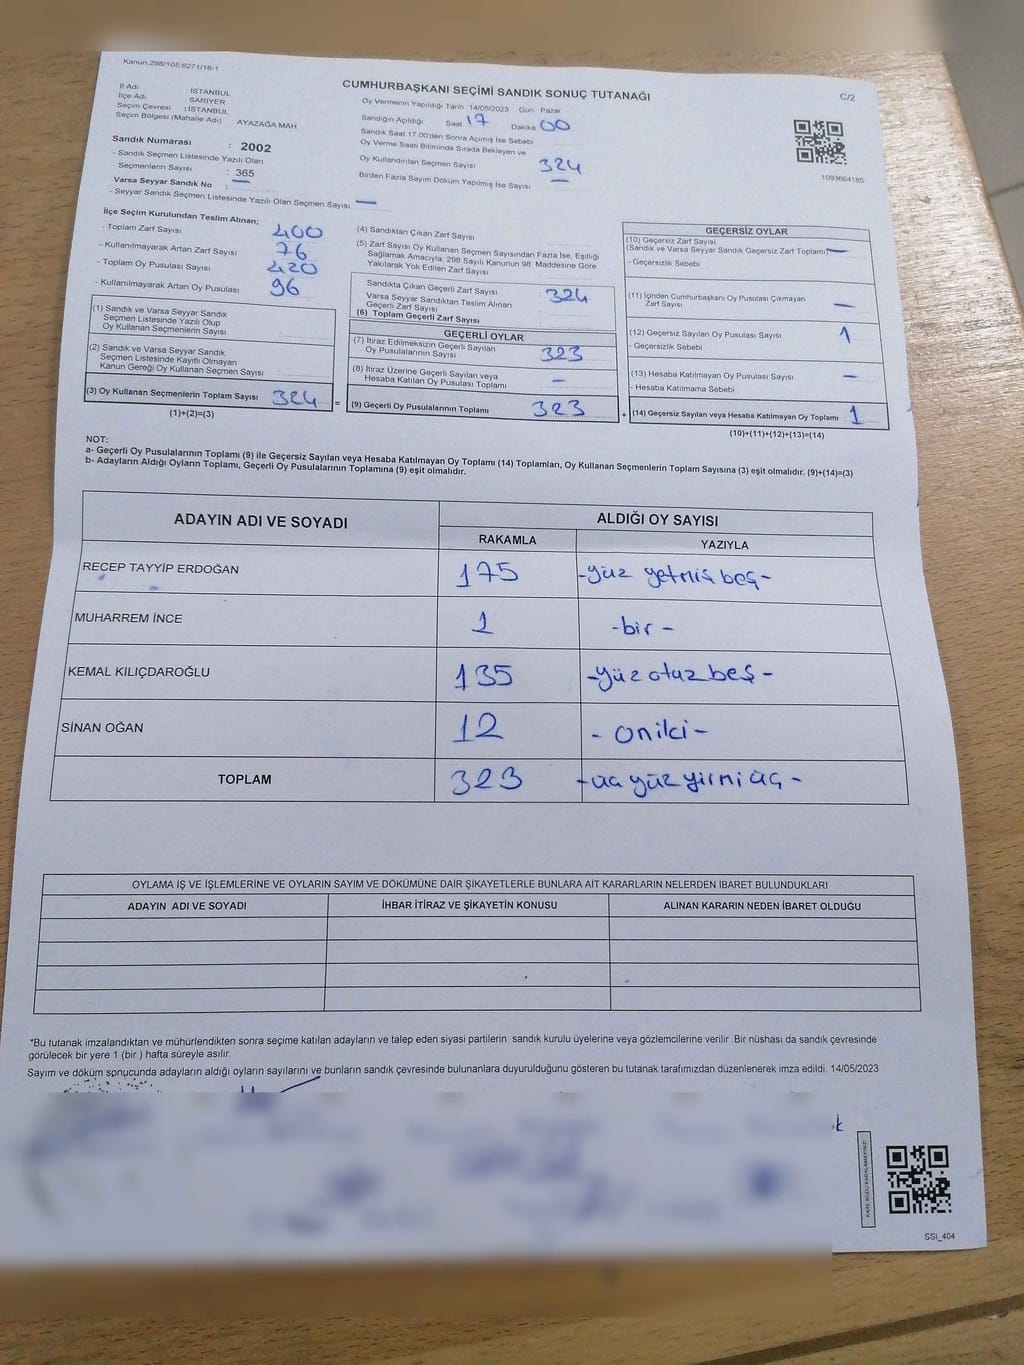 Kanun.298/105,6271/18-1
CUMHURBAŞKANI SEÇİMİ SANDIK SONUÇ TUTANAĞI
C/2
İl Adı : İSTANBUL
İlçe Adı : SARIYER
Seçim Çevresi : İSTANBUL
Seçim Bölgesi (Mahalle Adı) AYAZAĞA MAH
Sandık Numarası : 2002
- Sandık Seçmen Listesinde Yazılı Olan
Seçmenlerin Sayısı : 365
Varsa Seyyar Sandık No : —
- Seyyar Sandık Seçmen Listesinde Yazılı Olan Seçmen Sayısı —
Oy Vermenin Yapıldığı Tarih 14/05/2023 Gün Pazar
Sandığın Açıldığı Saat 17 Dakika 00
Sandık Saat 17.00'den Sonra Açımış İse Sebebi
Oy Verme Saati Bitiminde Sırada Bekleyen ve
Oy Kullandırılan Seçmen Sayısı 324
Birden Fazla Sayım Döküm Yapılmış İse Sayısı —
1093664185
İlçe Seçim Kurulundan Teslim Alınan;
- Toplam Zarf Sayısı 400
- Kullanılmayarak Artan Zarf Sayısı 76
- Toplam Oy Pusulası Sayısı 420
- Kullanılmayarak Artan Oy Pusulası 96
(1) Sandık ve Varsa Seyyar Sandık
Seçmen Listesinde Yazılı Olup
Oy Kullanan Seçmenlerin Sayısı
(2) Sandık ve Varsa Seyyar Sandık
Seçmen Listesinde Kayıtlı Olmayan
Kanun Gereği Oy Kullanan Seçmen Sayısı
(3) Oy Kullanan Seçmenlerin Toplam Sayısı 324 =
(1)+(2)=(3)
(4) Sandıktan Çıkan Zarf Sayısı
(5) Zarf Sayısı Oy Kullanan Seçmen Sayısından Fazla İse, Eşitliği
Sağlamak Amacıyla, 298 Sayılı Kanunun 98. Maddesine Göre
Yakılarak Yok Edilen Zarf Sayısı
Sandıkta Çıkan Geçerli Zarf Sayısı : 324
Varsa Seyyar Sandıktan Teslim Alınan
Geçerli Zarf Sayısı
(6) Toplam Geçerli Zarf Sayısı
GEÇERLİ OYLAR
(7) İtiraz Edilmeksizin Geçerli Sayılan
Oy Pusulalarının Sayısı 323
(8) İtiraz Üzerine Geçerli Sayılan veya
Hesaba Katılan Oy Pusulası Toplamı —
(9) Geçerli Oy Pusulalarının Toplamı 323 +
GEÇERSİZ OYLAR
(10) Geçersiz Zarf Sayısı
(Sandık ve Varsa Seyyar Sandık Geçersiz Zarf Toplamı) —
- Geçersizlik Sebebi
(11) İçinden Cumhurbaşkanı Oy Pusulası Çıkmayan
Zarf Sayısı —
(12) Geçersiz Sayılan Oy Pusulası Sayısı 1
- Geçersizlik Sebebi
(13) Hesaba Katılmayan Oy Pusulası Sayısı —
- Hesaba Katılmama Sebebi
(14) Geçersiz Sayılan veya Hesaba Katılmayan Oy Toplamı 1
(10)+(11)+(12)+(13)=(14)
NOT:
a- Geçerli Oy Pusulalarının Toplamı (9) ile Geçersiz Sayılan veya Hesaba Katılmayan Oy Toplamı (14) Toplamları, Oy Kullanan Seçmenlerin Toplam Sayısına (3) eşit olmalıdır. (9)+(14)=(3)
b- Adayların Aldığı Oyların Toplamı, Geçerli Oy Pusulalarının Toplamına (9) eşit olmalıdır.
ADAYIN ADI VE SOYADI ALDIĞI OY SAYISI
RAKAMLA YAZIYLA
RECEP TAYYİP ERDOĞAN 175 -yüz yetmiş beş-
MUHARREM İNCE 1 -bir-
KEMAL KILIÇDAROĞLU 135 -yüz otuz beş-
SİNAN OĞAN 12 -oniki-
TOPLAM 323 -üç yüz yirmi üç-
OYLAMA İŞ VE İŞLEMLERİNE VE OYLARIN SAYIM VE DÖKÜMÜNE DAİR ŞİKAYETLERLE BUNLARA AİT KARARLARIN NELERDEN İBARET BULUNDUKLARI
ADAYIN ADI VE SOYADI İHBAR İTİRAZ VE ŞİKAYETİN KONUSU ALINAN KARARIN NEDEN İBARET OLDUĞU
*Bu tutanak imzalandıktan ve mühürlendikten sonra seçime katılan adayların ve talep eden siyasi partilerin sandık kurulu üyelerine veya gözlemcilerine verilir .Bir nüshası da sandık çevresinde
görülecek bir yere 1 (bir ) hafta süreyle asılır.
Sayım ve döküm sonucunda adayların aldığı oyların sayılarını ve bunların sandık çevresinde bulunanlara duyurulduğunu gösteren bu tutanak tarafımızdan düzenlenerek imza edildi. 14/05/2023
KARE KODU KARALAMAYINIZ!
SSİ_404